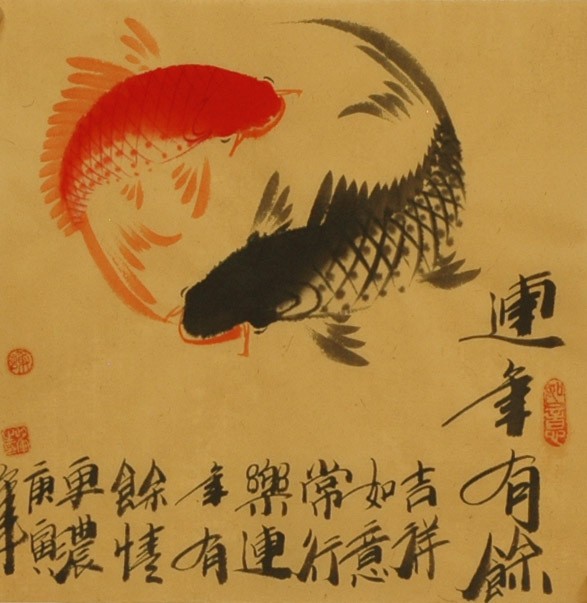 連年有餘
吉祥
如意
常行
樂連
年有
餘情
更濃
庚寅